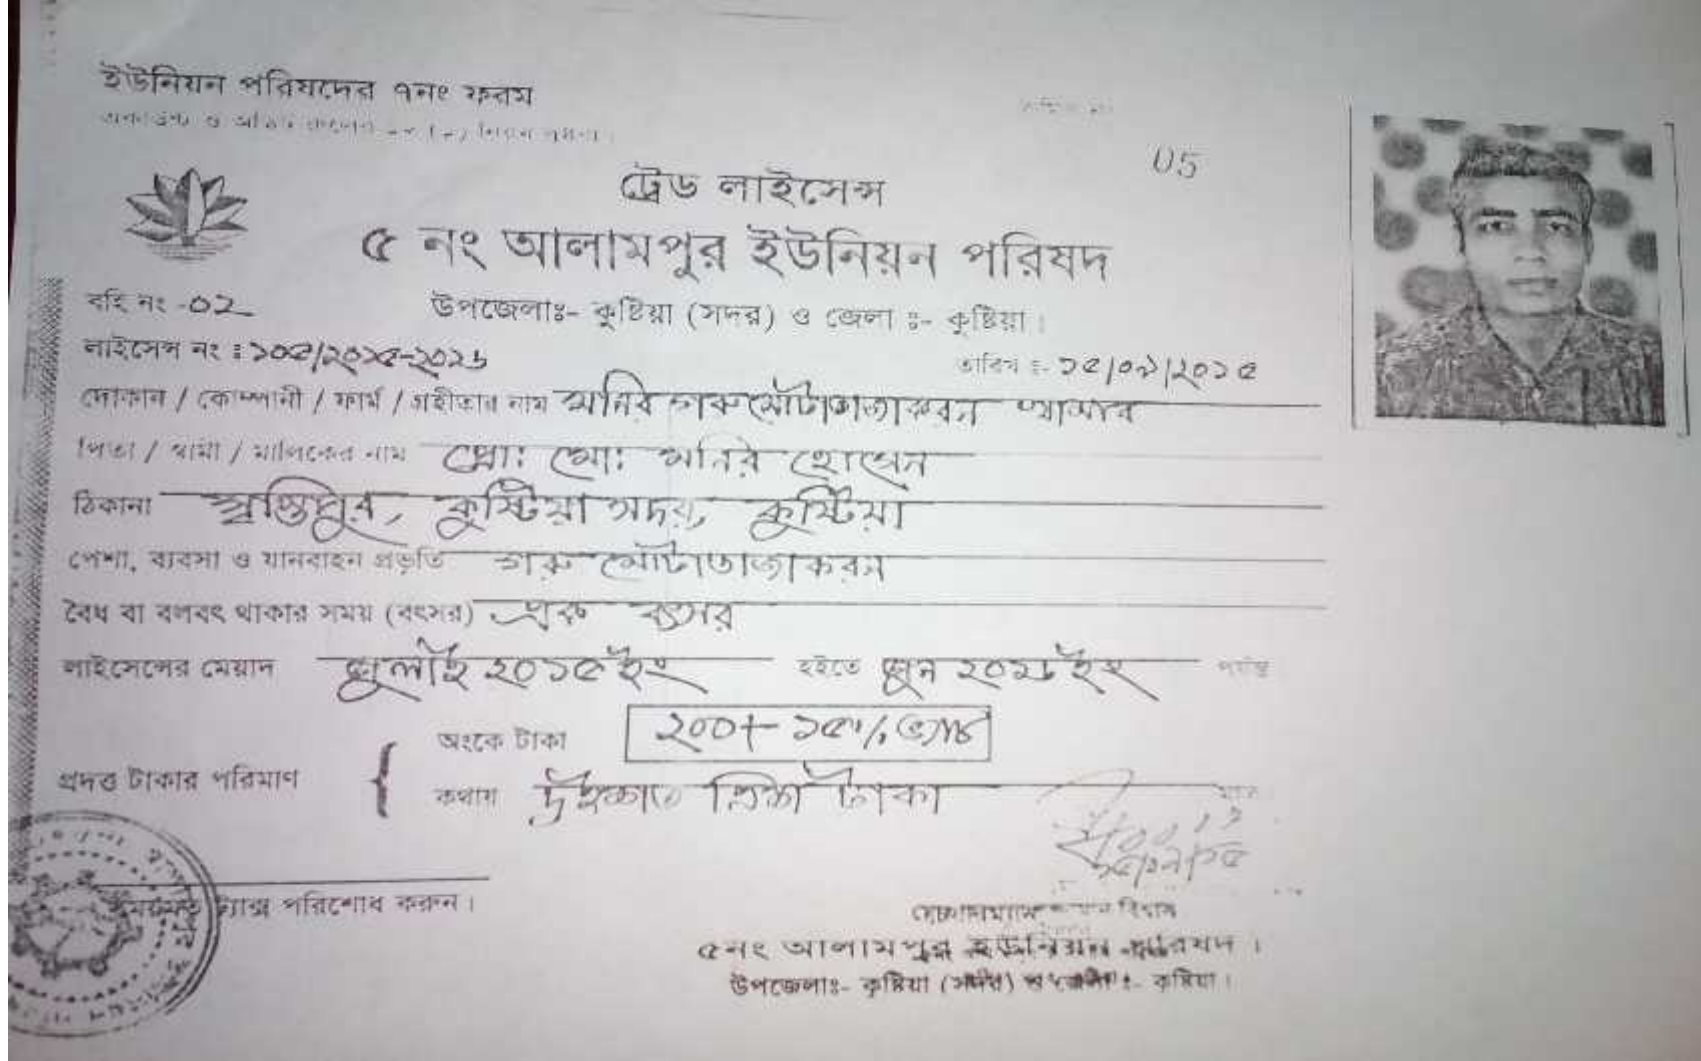 ইউনিয়ন পরিষদের ৭নং ফরম
05
ট্রেড লাইসেন্স
৫ নং আলামপুর ইউনিয়ন পরিষদ
বহি নং -০২
উপজেলাঃ- কুষ্টিয়া (সদর) ও জেলা ঃ- কুষ্টিয়া।
লাইসেন্স নং ঃ ১০৫/২০১৫-২০১৬
তারিখ ঃ- ১৫/০৯/২০১৫
দোকান / কোম্পানী / ফার্ম / গ্রহীতার নাম মনির গরু মোটাতাজাকরন খামার
পিতা / স্বামী / মালিকের নাম প্রো: মো: মনির হোসেন
ঠিকানা স্বস্তিপুর, কুষ্টিয়া সদর, কুষ্টিয়া
পেশা, ব্যবসা ও যানবাহন প্রভৃতি গরু মোটাতাজাকরন
বৈধ বা বলবৎ থাকার সময় (বৎসর) এক বৎসর
লাইসেন্সের মেয়াদ জুলাই ২০১৫ইং হইতে জুন ২০১৬ইং পর্যন্ত
অংকে টাকা ২০০+ ১৫% ভ্যাট
প্রদত্ত টাকার পরিমাণ
কথায় দুইশত ত্রিশ টাকা মাত্র
১৫/০৯/১৫
ট্যাক্স পরিশোধ করুন।
৫নং আলামপুর ইউনিয়ন পরিষদ।
উপজেলাঃ- কুষ্টিয়া (সদর) ও জেলা ঃ- কুষ্টিয়া।